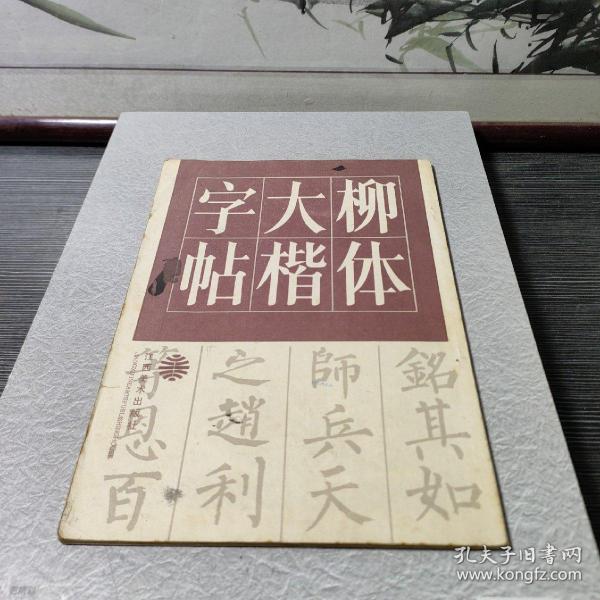 柳体
大楷
字帖
銘其如
師兵天
之趙利
等恩百
江西美术出版社
孔夫子旧书网
www.kongfz.com